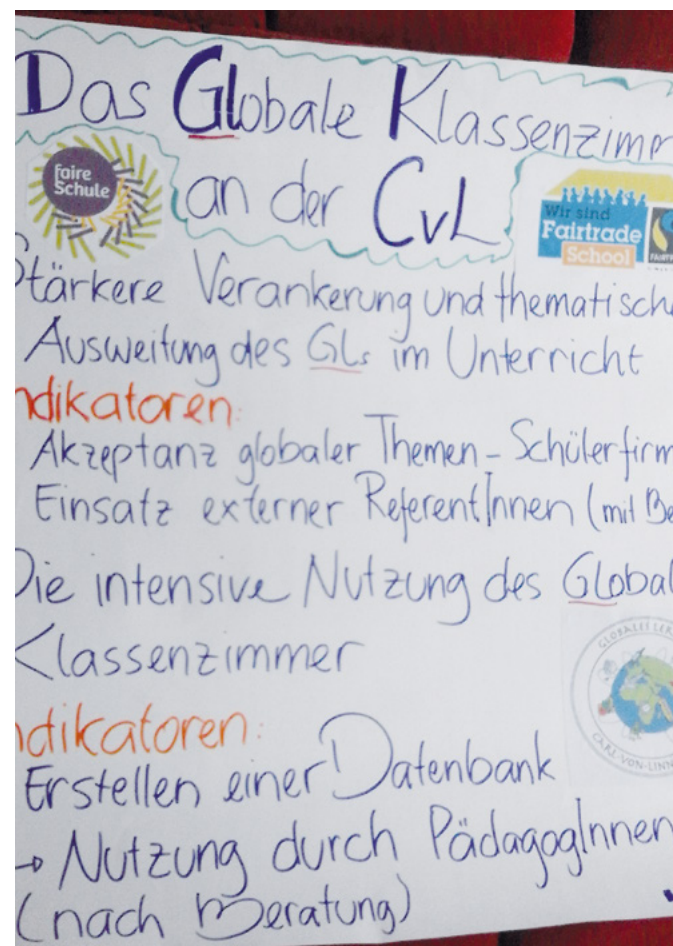 Das Globale Klassenzimm
an der CvL
faire
Schule
Wir sind
Fairtrade
School
FAIRT
Stärkere Verankerung und thematische
Ausweitung des GLs im Unterricht
ndikatoren:
Akzeptanz globaler Themen - Schülerfirm
Einsatz externer ReferentInnen (mit Be
Die intensive Nutzung des Global
Klassenzimmer
GLOBALES LER
CARL-VON-LINN
ndikatoren:
Erstellen einer Datenbank
→ Nutzung durch PädagogInnen
(nach Beratung)